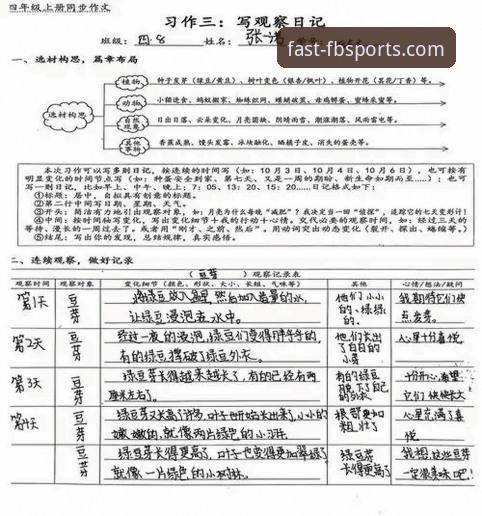 四年级上册同步作文
习作三：写观察日记
班级：四8 姓名：张洁
fast-fbsports.com
一、选材构思，篇章布局
选材构思
植物 种子发芽（绿豆/黄豆）、树叶变色（银杏/枫叶）、植物开花（昙花/丁香）等。
动物 小猫进食、蚂蚁搬家、蜘蛛织网、蝴蝶破茧、母鸡孵蛋、蜜蜂采蜜等。
自然现象 日出日落、云朵变化、月亮圆缺、阴晴雨雪、潮涨潮落、风雨雷电等。
其他事物 香蕉成熟、馒头发霉、冰块融化、晒橘子皮、消失的蛋壳等。
本次习作可以写多则日记，按连续的时间写（如：10月3日、10月4日、10月6日），也可按有
明显变化的时间节点写（如：种蛋安全到家、第七天、又是一周的期盼、新生命如期而至……）；也可
写一则日记，比如早上、中午、晚上；7：05、13：20、15：20……日记格式如下：
①标题：居中，自拟具有创意的标题。
②第二行中间写日期、星期、天气。
③开头：简洁有力地引出观察对象，如：月亮为什么每晚“减肥”？我决定当一回“侦探”，追踪它的七天变形计！
④中间：按时间抽写变化，写出变化细节+我的行动+心情。交代必要的观察时间，如：经过三天的
等待、漫长的一周过去了。或者用“刚才、之前、然后”。用动词突出动态变化（裂开、探出、蜷缩等。）
⑤结尾：写出你的发现，总结规律，真实感悟。
二、连续观察，做好记录
（豆芽）观察记录表
观察时间 观察对象 变化细节（颜色、形状、大小、长短、气味等） 其他 心情/想法/疑问
第1天 豆芽 将绿豆放入盒里，然后加入适量的水，
让绿豆浸泡在水中。 他们小小的、绿绿的。 我期待它们快点发芽。
第2天 豆芽 经过一夜的浸泡，绿豆们变得胖乎乎的，
有的绿豆撑破了绿豆外衣。 他们长出了白白的小芽 心里十分喜悦。
第3天 豆芽 绿豆芽长得越来越长了，有的已经有两
厘米左右了。 有的绿豆脱下了自己的外衣 十分开心，希望它们快快长大
第4天 豆芽 绿豆芽又长高了许多，叶子也开始长出来了，小小的
嫩嫩的，就像两片绿色的小羽毛 根部更加粗壮了 心里充满了喜悦
豆芽 绿豆芽长得更高了，叶子也变得更加翠绿了
就像一片绿色的小树林。 绿豆芽长得更高了 我想，这些豆芽一定很美味吧！